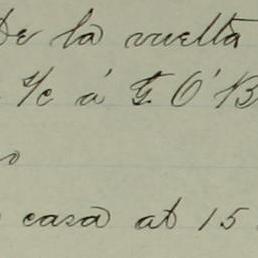 De la vuelta
%c á G. O'B
o
casa at 15